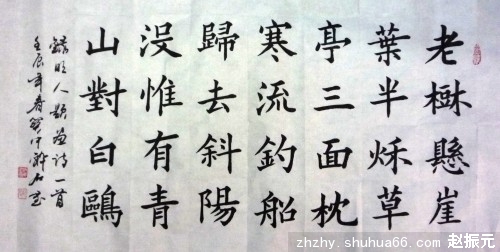 老樹懸崖
葉半秋草
亭三面枕
寒流釣船
歸去斜陽
没惟有青
山對白鷗
錄明人題画詩一首
壬辰年春
zhzhy.shuhua66.com 赵振元